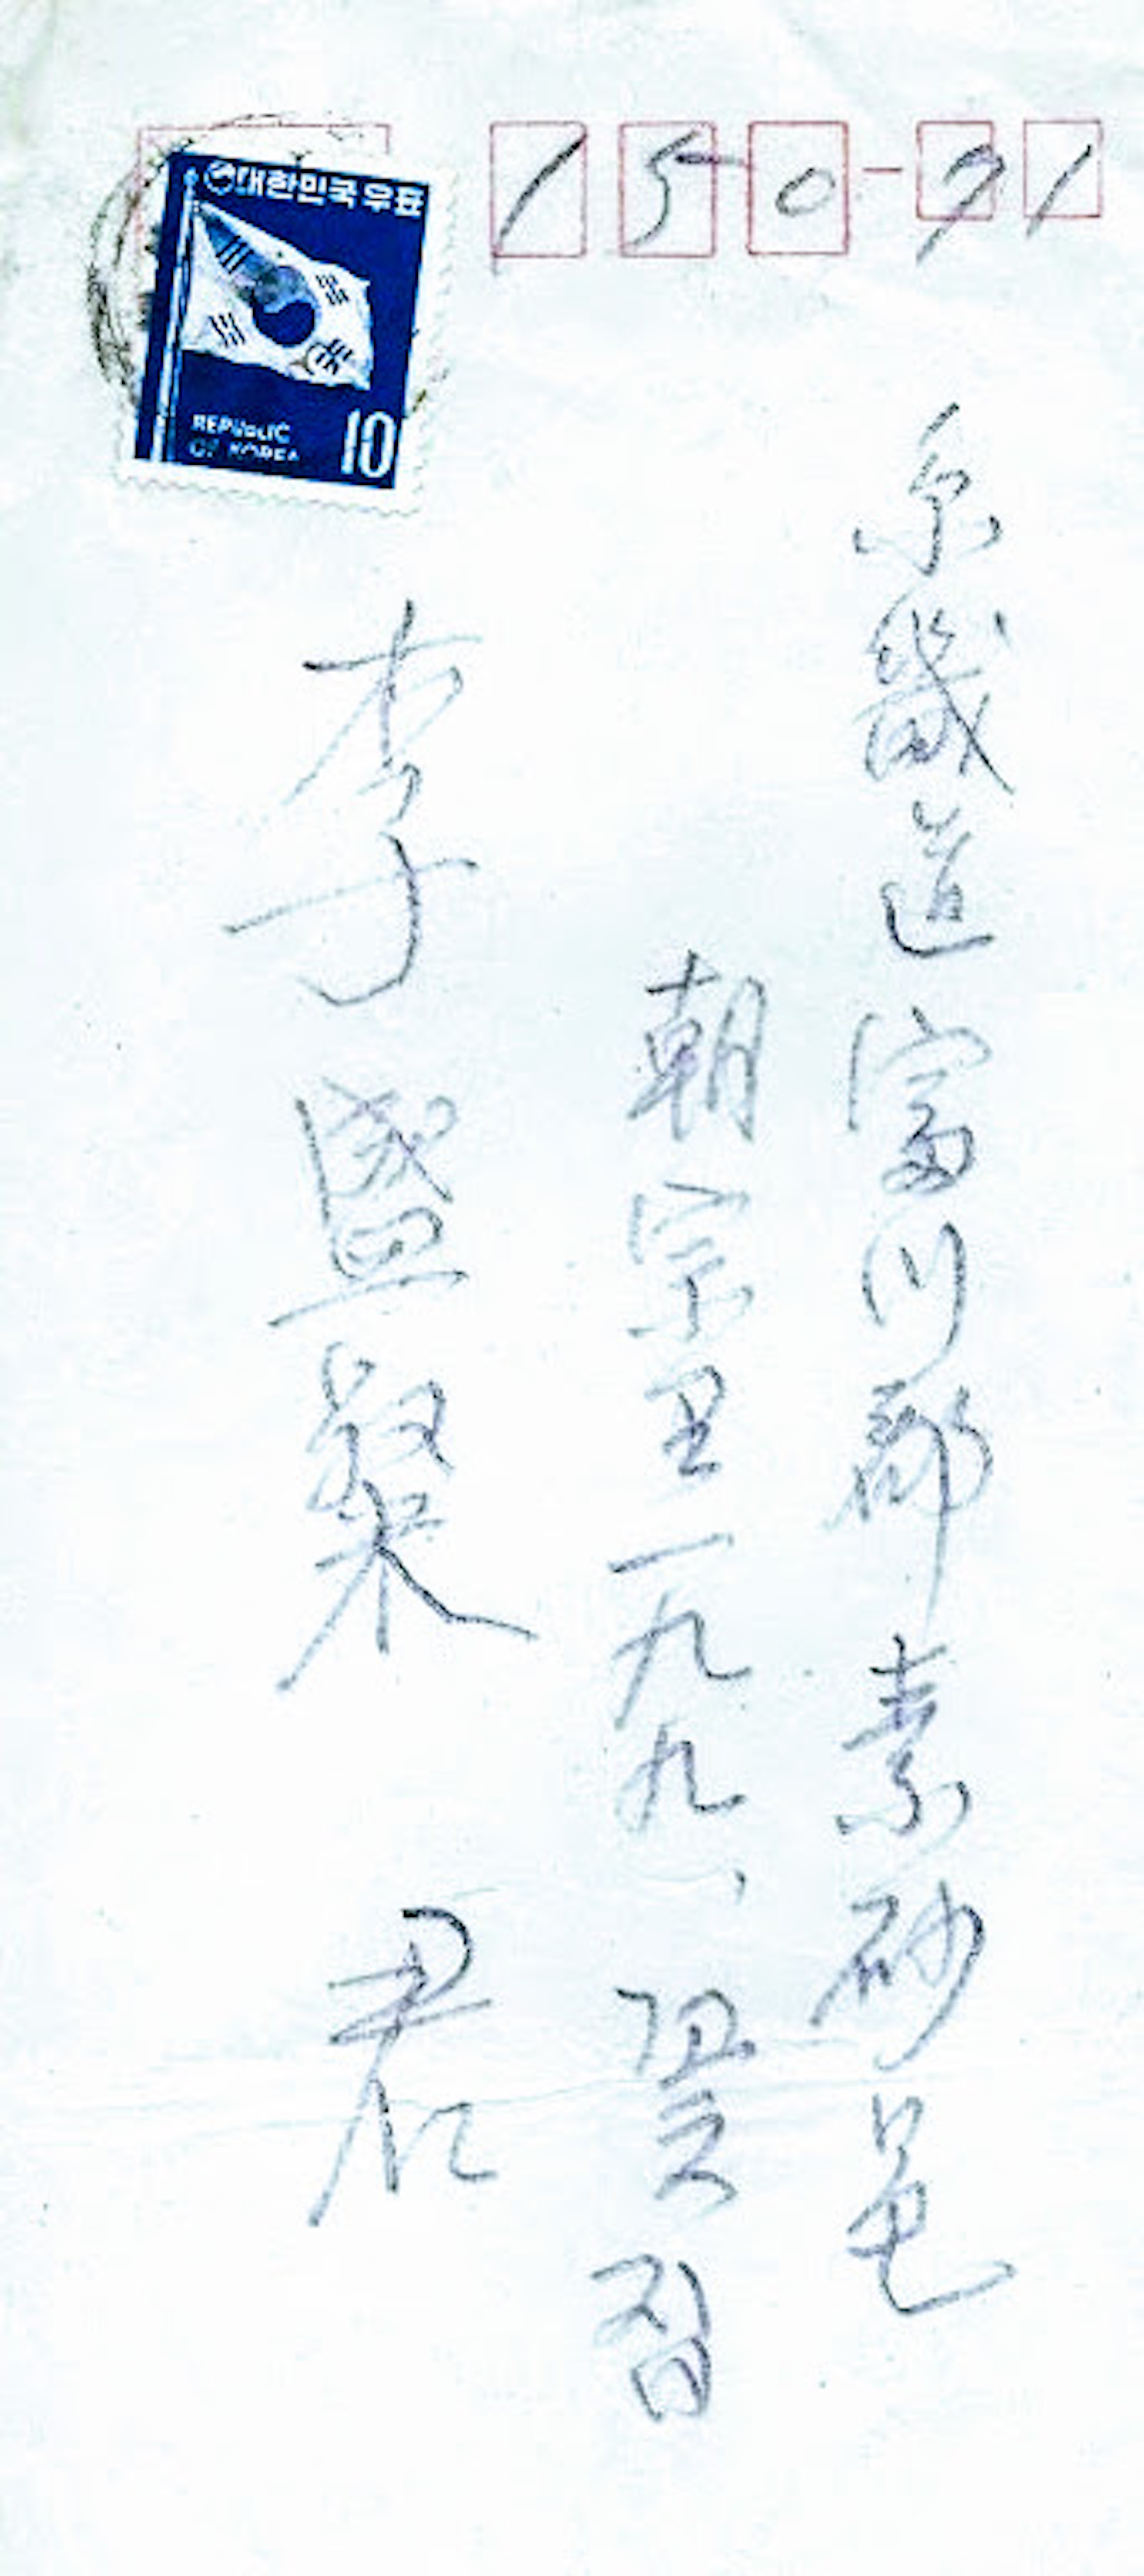 대한민국우표
REPUBLIC
OF KOREA
10
150-91
京畿道 富川郡 素砂邑
朝宗里 一九九八
집
李盛粲 君